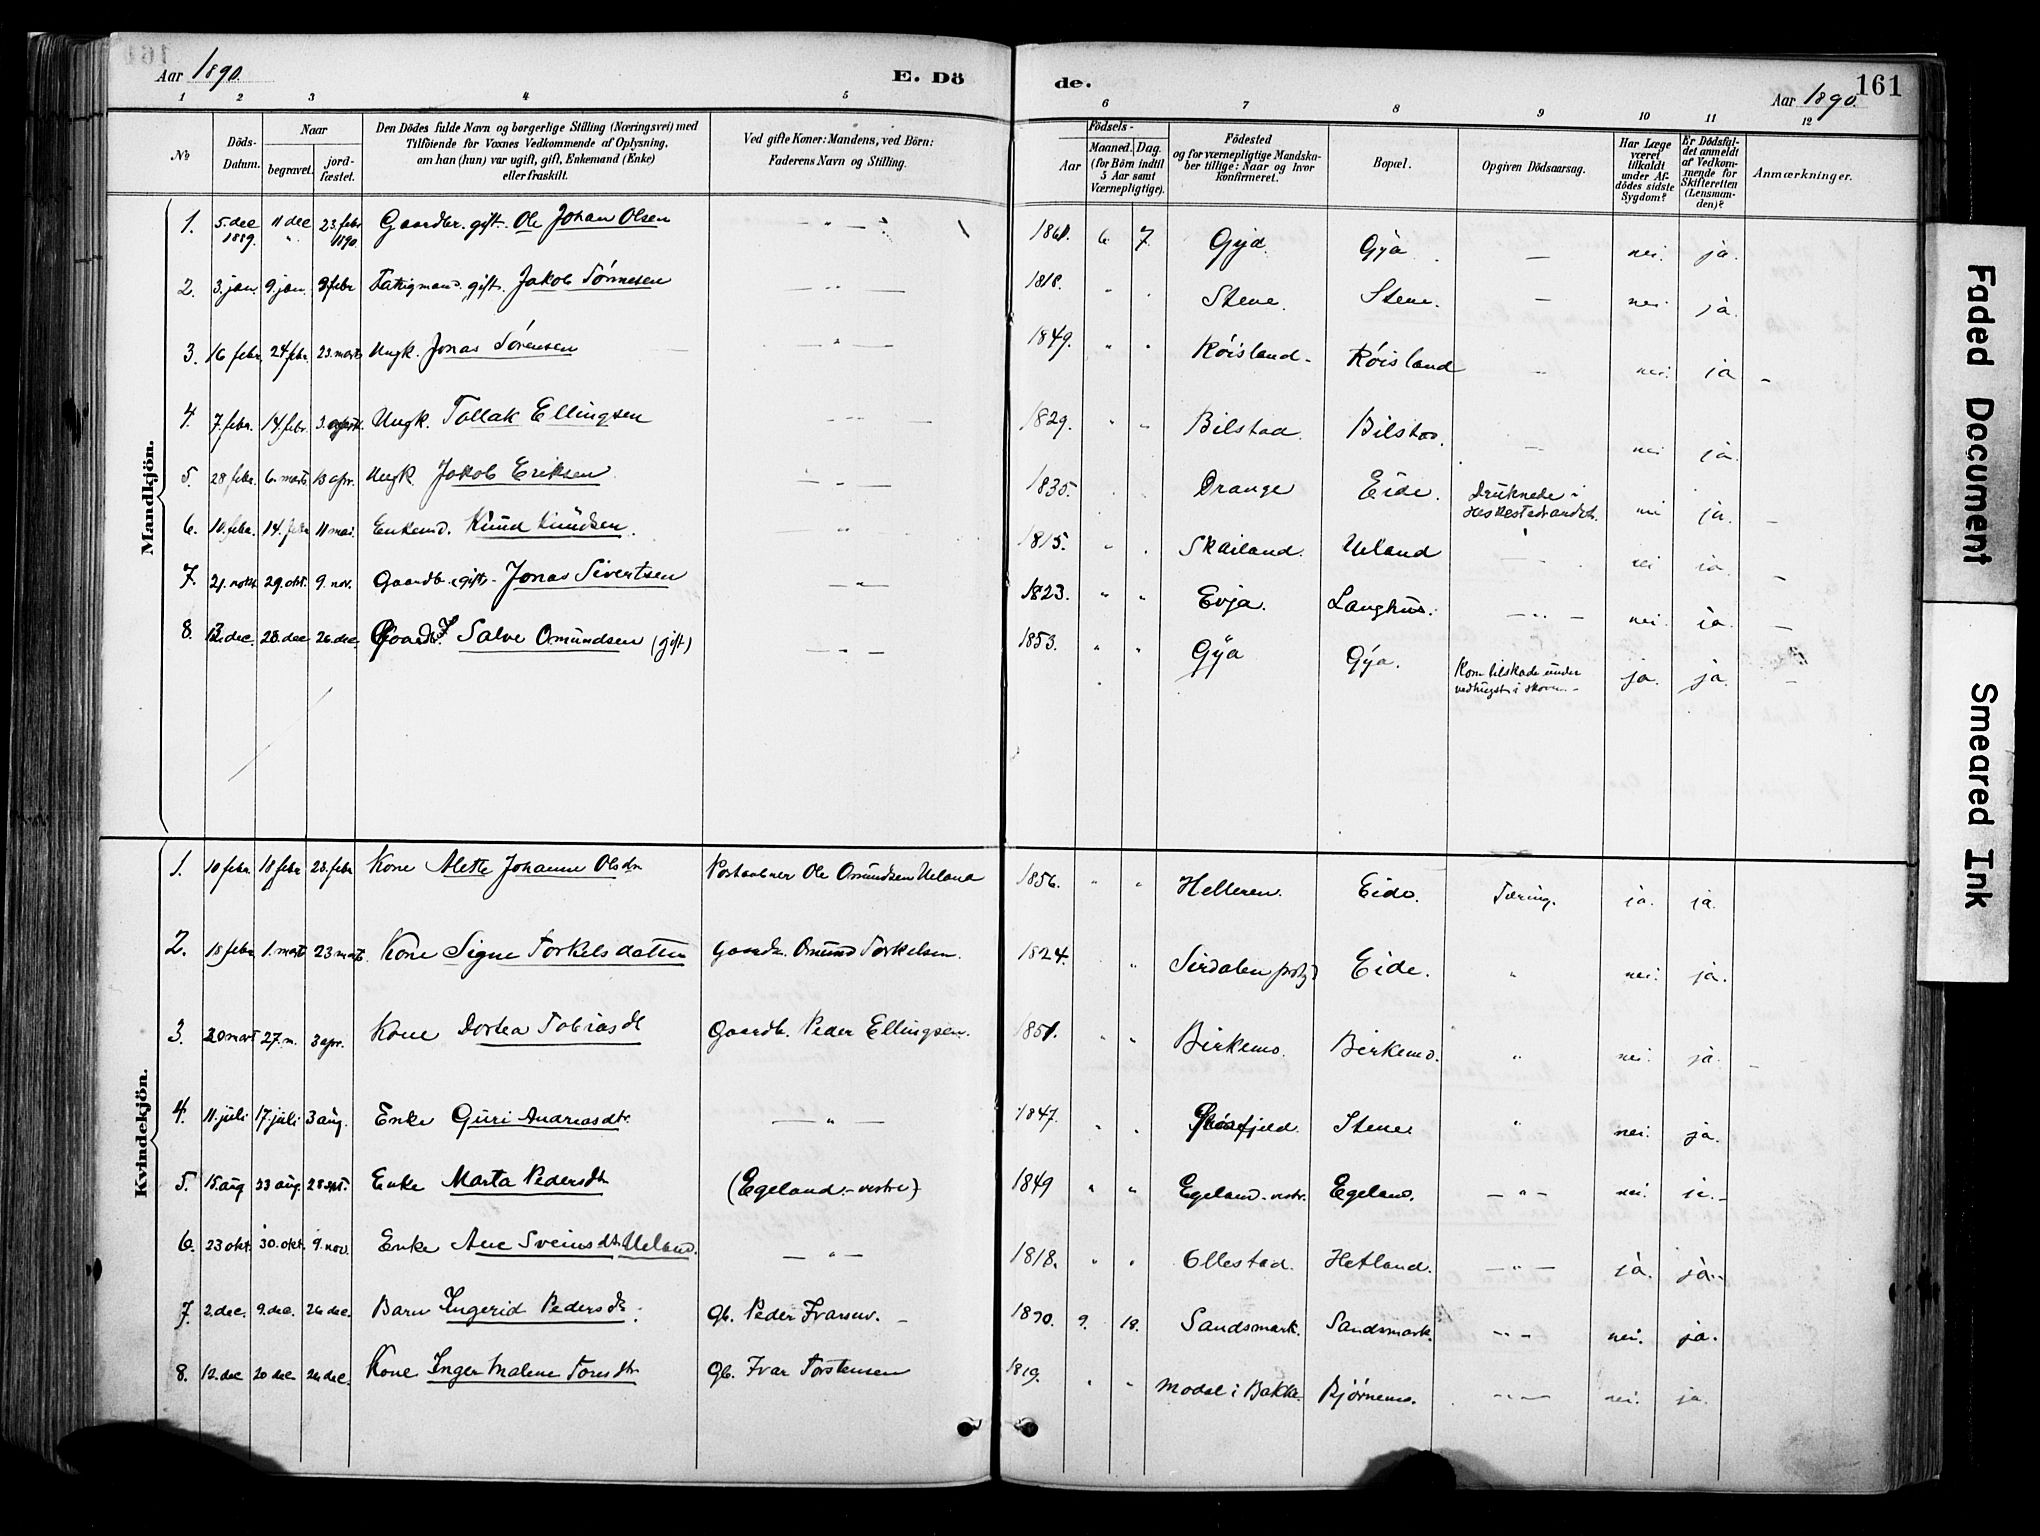 161
Aar 1890.
E. Dö
de.
Aar 1890.
1 2 3 4 5 6 7 8 9 10 11 12
No
Döds-Datum.
Naar
begravet.
jord-fæstet.
Den Dödes fulde Navn og borgerlige Stilling (Næringsvei) med
Tilföiende for Voxnes Vedkommende af Oplysning,
om han (hun) var ugift, gift, Enkemand (Enke)
eller fraskilt.
Ved gifte Koner: Mandens, ved Börn:
Faderens Navn og Stilling.
Födsels-
Aar
Maaned.
Dag.
(for Börn indtil
5 Aar samt
Værnepligtige).
Födested
og for værnepligtige Mandska-
ber tillige: Naar og hvor
konfirmeret.
Bopæl.
Opgiven Dödsaarsag.
Har Læge
været
tilkaldt
under Af-
dödes sidste
Sygdom?
Er Dödsfal-
det anmeldt
af Vedkom-
mende for
Skifteretten
(Lensman-
den)?
Anmærkninger.
Mandkjön.
1. 5. dec 1889. 11 dec " 23. febr 1890. Gaardbr. gift. Ole Johan Olsen — " — 1861. 6 7. Gya Gya — nei. ja.
2. 3. jan. 9. jan. 9 febr gift. Jakob Tönnesen — " — 1818. " " Stene. Stene. — nei ja.
3. 16 febr. 24 febr. 23. marts Ungk. Jonas Sörensen — " — 1849. " " Röisland - Röisland " nei. ja —
4. 7. febr. 14. febr. Ungk. Tollak Ellingsen — " — 1829. " " Bilstad. Bilstad. — nei ja.
5. 28 febr. 6. marts 13 apr. Ungk Jakob Eriksen. — " — 1835. Drange Eide. Druknede i nei ja. —
6. 10. febr. 14. febr 11 mai. Enkemd. Knud Knudsen. " 1815. " Skailand. Ueland — nei ja. —
7. 21. okt. 29. okt. 9. nov. Gaardb. gift - Jonas Sivertsen — " — 1823. " " Evja. Langhus. — " — nei. ja. —
8. 13. dec. 28. dec 26 dec. Gaardb. Salve Omundsen (gift) — " — 1853. " " Gya Gya. Kom tilskade under vedhugst i skoven. - ja. ja. —
Kvindekjön.
1. 10 febr. 18 febr 23. febr Kone Alette Johanne Olsdtr Postaabner Ole Omundsen Ueland 1856. " " Helleren. Eide. Tæring. ja. ja.
2. 18 febr. 1. marts 23 marts. Kone Signe Torkelsdatter Gaardb. Omund Torkelsen. 1824. " Sirdalen Eide. " nei. ja.
3. 20 mart 27. m. 3 apr. Kone Dortea Tobiasdt Gaardb. Peder Ellingsen. 1851. " " Birkemo. Birkemo. " nei. ja. —
4. 11. juli 17. juli 3 aug. Enke Guri Andreasdtr. — " — 1847. " " Stene " nei. ja.
5. 15. aug 23 aug. 28 spt. Enke Marta Pedersdtr (Egeland - vestre) 1849 " " Egeland - vestr. Egeland. — " — nei. ja. -
6. 23 okt. 30. okt. 9. nov. Enke Ane Sveinsdtr Ueland. — " — 1818. " " Ollestad. Hetland. — " — ja. ja.
7. 2. dec. 9. dec. 26 dec. Barn Ingerid Pedersdtr. Gb. Peder Ivarsen. — 1890. 9. 18. Sandsmark. Sandsmark. — " — nei. ja.
8. 12. dec 20 dec 26 dec. Kone Inger Malene Torsdtr Gb. Ivar Torstensen 1819. " " Modal i Bakke Bjørnemo. — " — nei. ja.
Faded Document
Smeared Ink